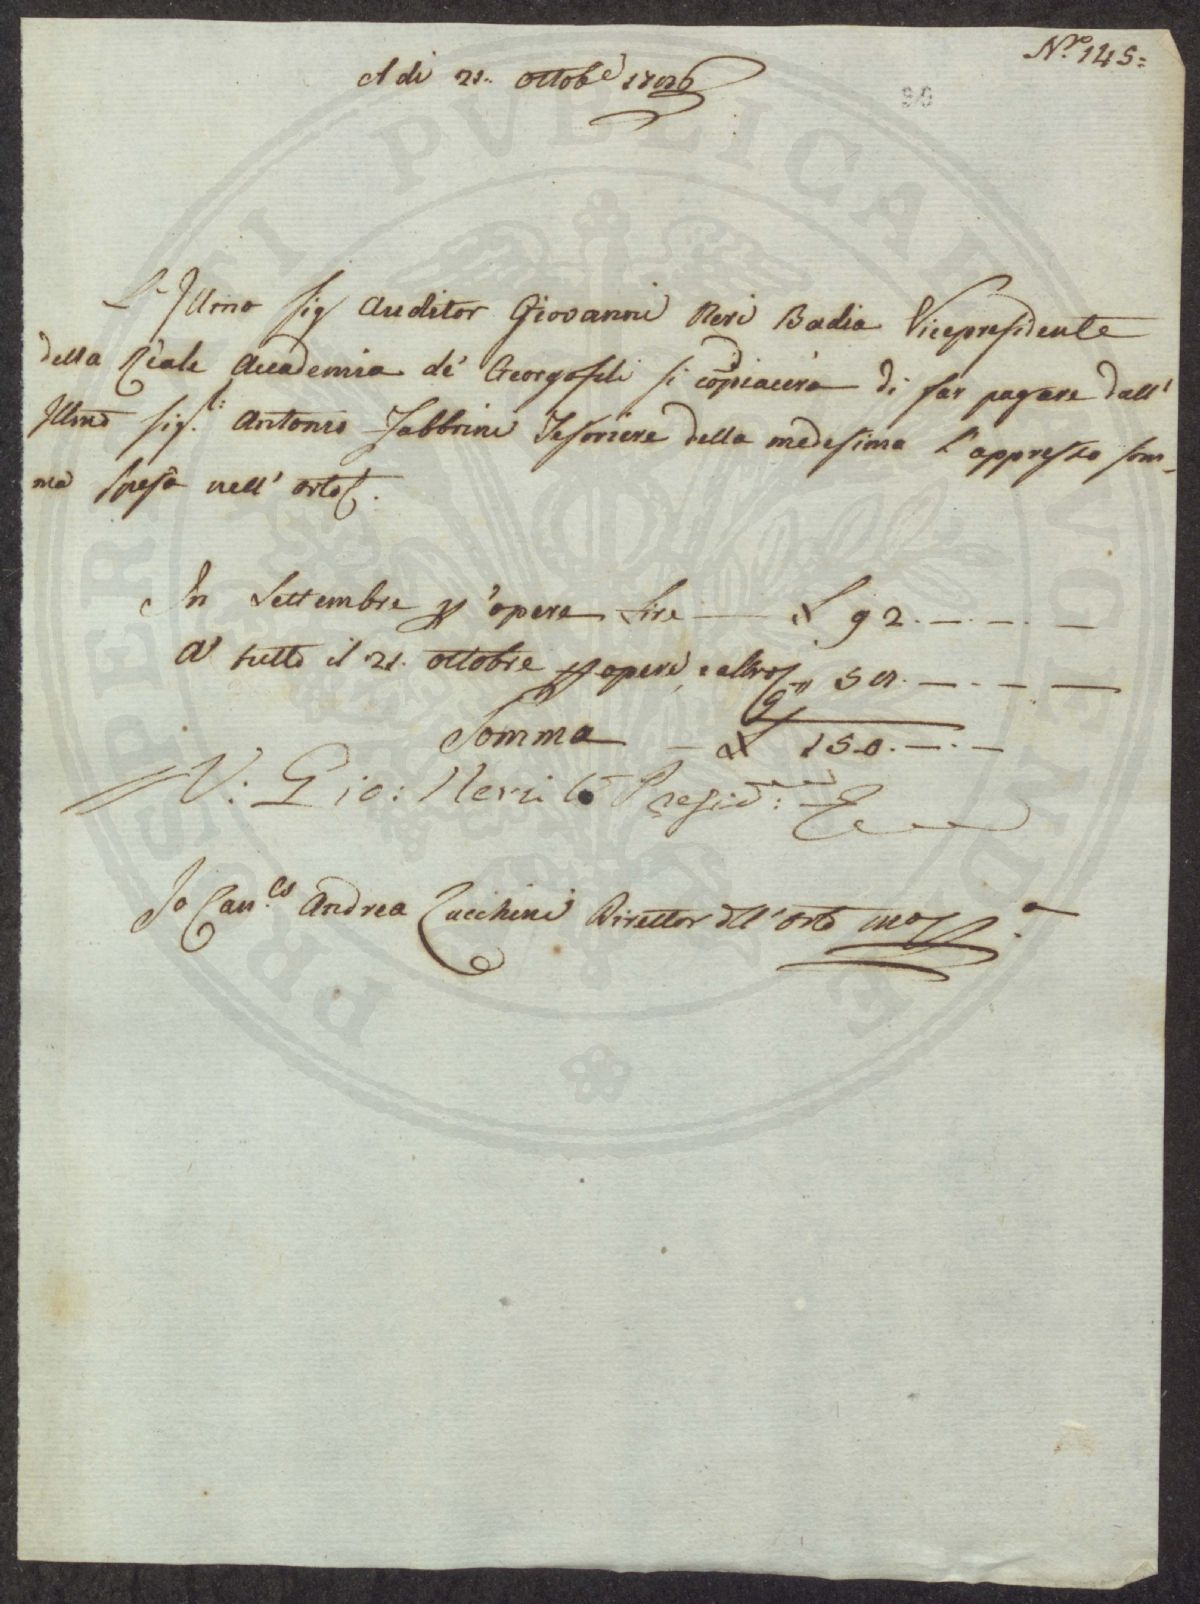 N.ro 145=
A di 21. Ottobe
90
L'Illmo Sig Auditor Giovanni Neri Badia Vicepresidente
della Reale Accademia de' Georgofili si copiacerà di far pagare dall'
Illmo Sig.e: Antonio Fabbrini Tesoriere della medesima l'appresso som-
ma spesa nell'orto
In Settembre opere Lire — £ 92. — . — . —
A' tutto il 21. Ottobre opere, e altro — . — . —
Somma — £ 150. — . —
V: Gio: Neri Presid:
Io Can.co Andrea Zucchini Direttor dll'orto
PROSPERITATI PVBLICAE AVGENDAE